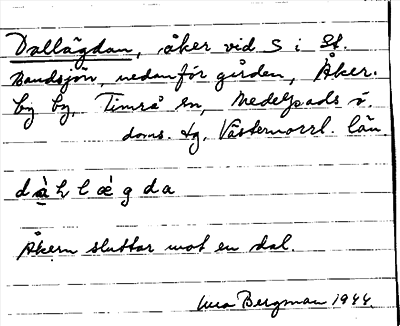 Dallägdan, åker vid S i St.
Bandsjön, nedanför gården, Åker-
by by, Timrå sn, Medelpads ö.
doms. tg, Västernorrl. län
dàhlægda
Åkern sluttar mot en dal.
Bergman 1944.